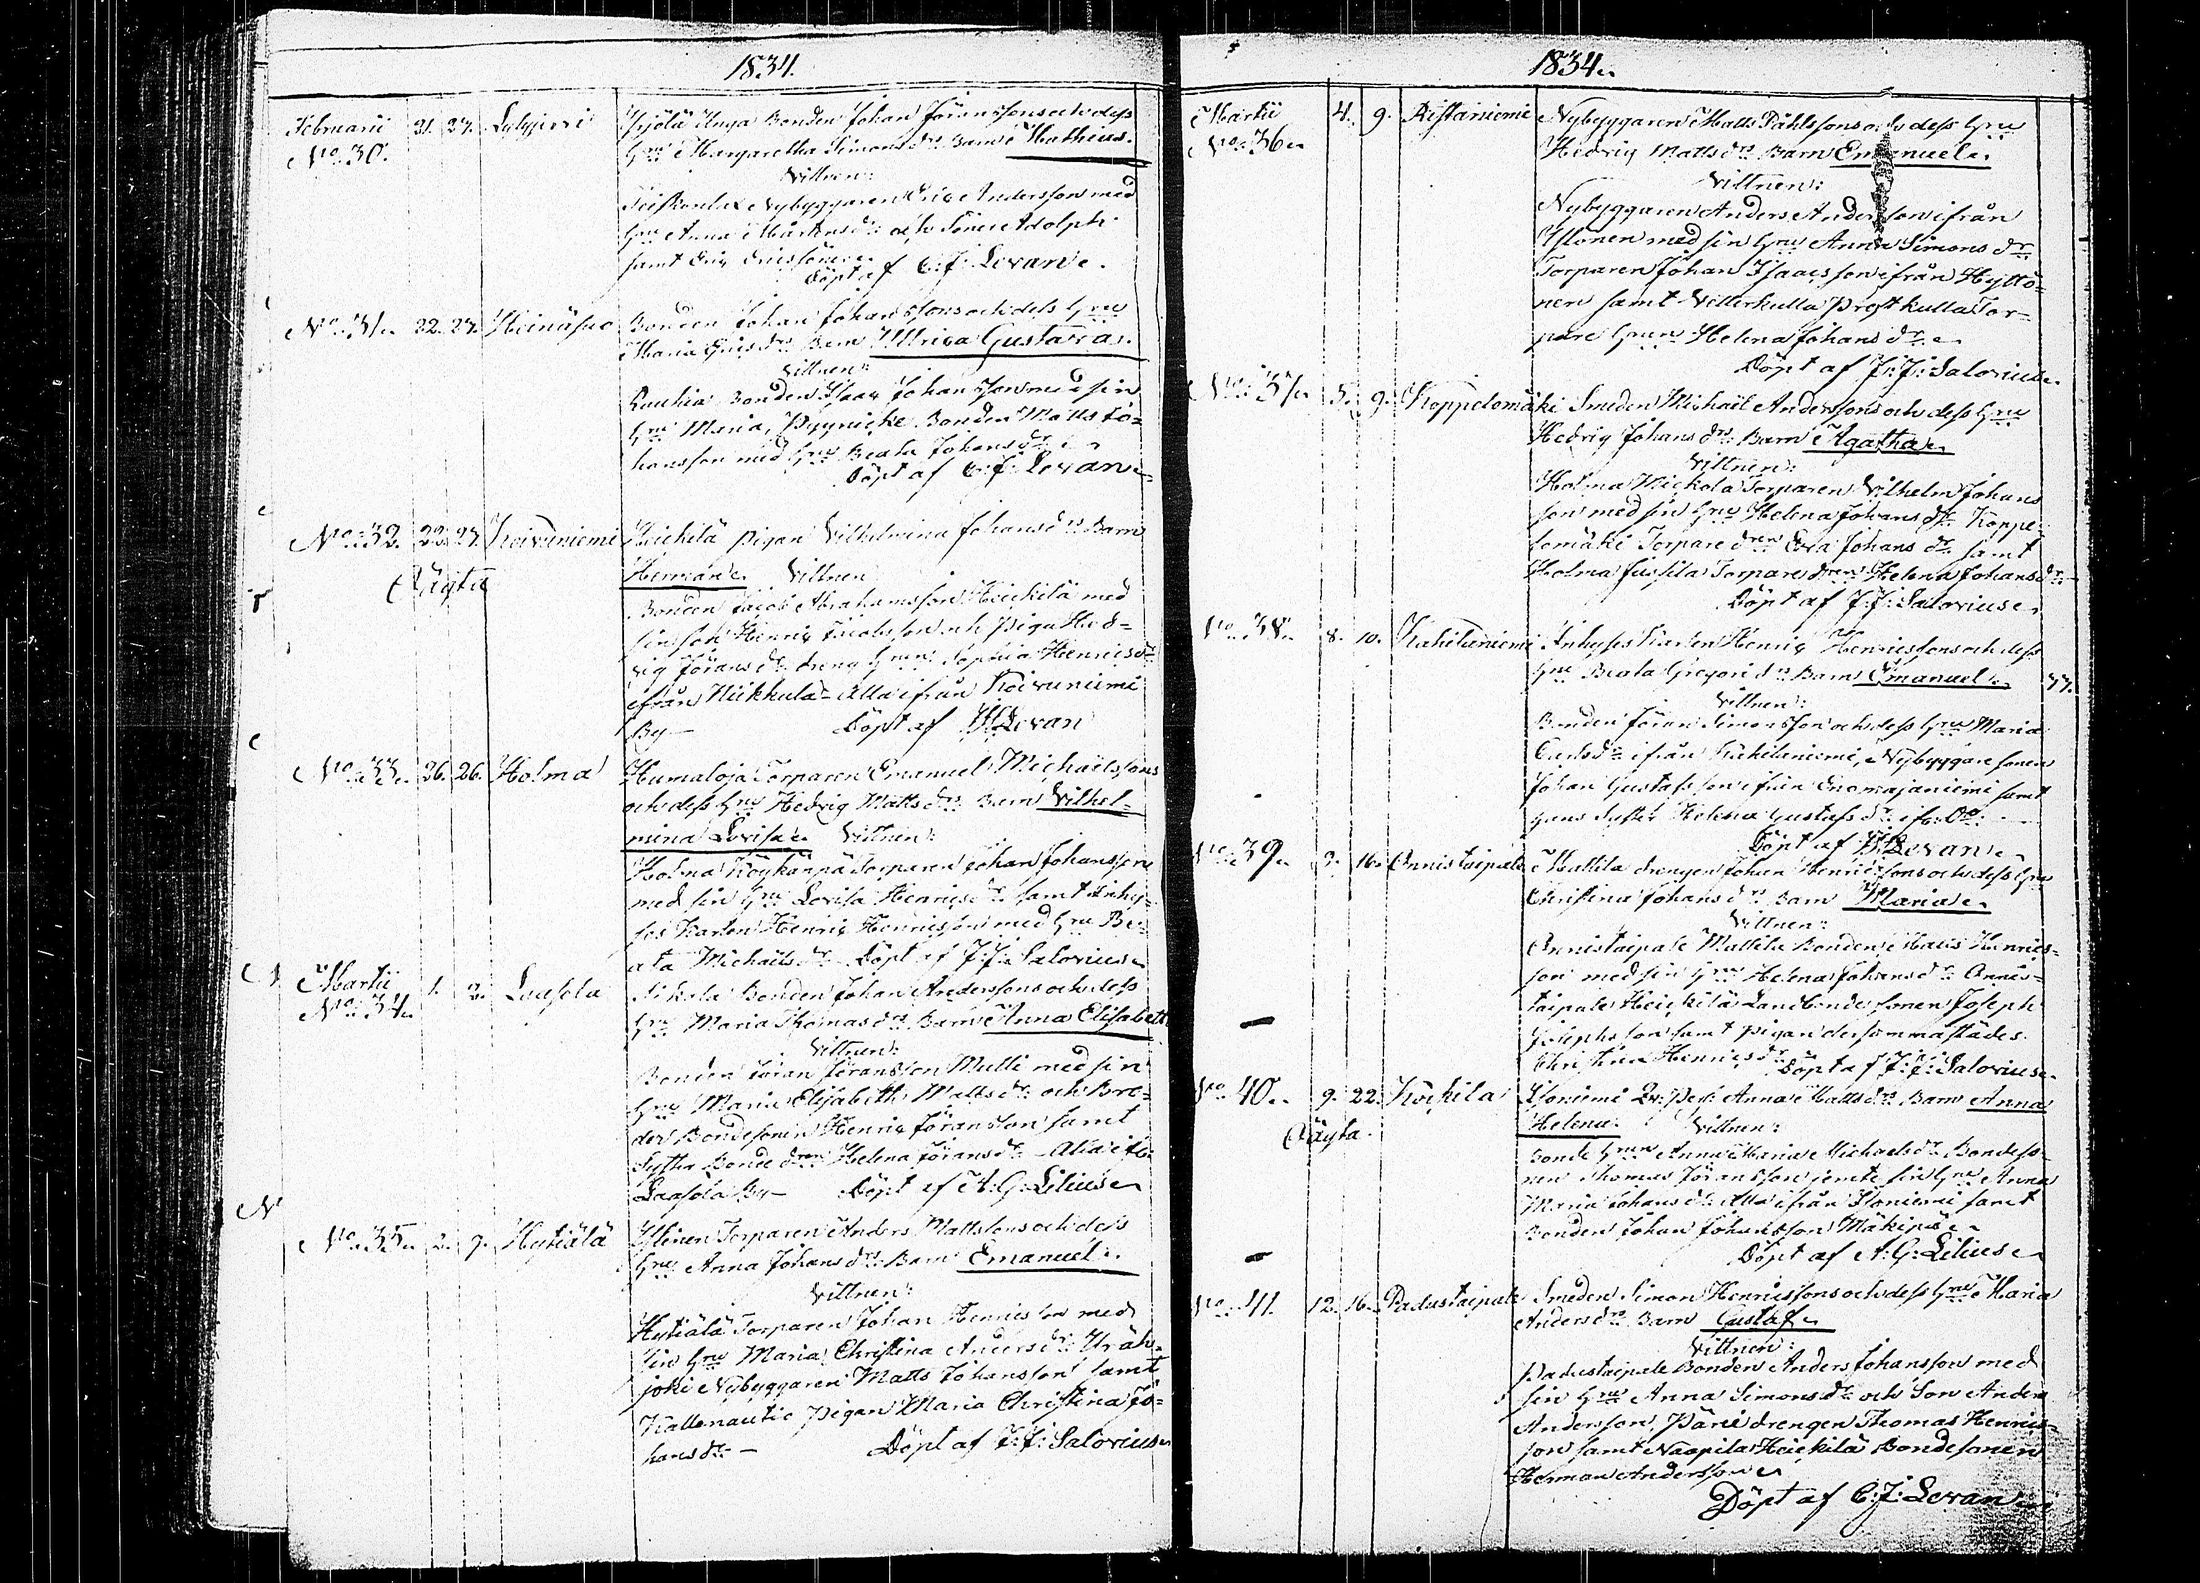 1834.
Februarii 21. 27.
No: 30.
Bonden Johan Göransson och dess
Hru Margaretha Simonsdr Barn Mathias.
Vittnen:
Nybyggaren Eric Andersson med
Hru Anna Mårtensdr och Sonen Adolph
samt Eric Ericsson
Döpt af C:J: Levan.
No: 31. 22. 27. Heinäsuo
Bonden Johan Johansson och dess Hru
Maria Ericsdr Barn Ullrica Gustava.
Vittnen:
Bonden Isaac Johansson med sin
Hru Maria, Pyynicke Bonden Matts Jo-
hansson med Hru Beata Johansdr
Döpt af C:J: Levan.
No: 32. 22. 27. Koivuniemi
Oägta
Heickilä pigan Vilhelmina Johansdrs Barn
Herman. Vittnen
Bonden Jacob Abrahamsson Heickilä med
sin son Henric Jacobsson och Piga Hed-
vig Göransdr dreng Hrun Sophia Henricsdr
ifrån Nickkula - Alla ifrån Koivuniemi
By - Döpt af Levan
No: 33. 26. 26. Holma
Humaloja Torparen Emanuel Michaelsson
och dess Hru Hedvig Mattsdr Barn Vilhel-
mina Lovisa. Vittnen:
Holma Röykänpä Torparen Johan Johansson
med sin Hru Lovisa Henricsdr samt Inhy-
ses Karlen Henric Henricsson med Hru Be-
ata Michaelsdr Döpt af J:J: Salovius
Martii
No: 34. 1. 2. Laasola
Bonden Johan Andersson och dess
Hru Maria Thomasdr Barn Anna Elisabeth
Vittnen:
Bonden Göran Göransson Mulli med sin
Hru Maria Elisabeth Mattsdr och Bro-
der Bondesonen Henric Göransson samt
Syster Bonde dren Helena Göransdr - Alla ifr:
Laasola By - Döpt af A:G: Lilius
No: 35. 2. 9. Hytiälä
Ylinen Torparen Anders Mattsson och dess
Hru Anna Johansdr Barn Emanuel.
Vittnen:
Hytiälä Torparen Johan Henricsson med
sin Hru Maria Christina Andersdr
joki Nybyggaren Matts Johansson samt
Kallonautio Pigan Maria Christina Jo-
hansdr - Döpt af J:J: Salovius
1834.
Martii 4. 9. Ristaniemi
No: 36.
Nybyggaren Matts Påhlsson och dess Hru
Hedvig Mattsdr Barn Emanuel.
Vittnen:
Nybyggaren Anders Andersson ifrån
Ylönen med sin Hru Anna Simonsdr
Torparen Johan Isaacsson ifrån Hyttö-
nen samt Vitterkulla Prostkulla Tor-
pare Hrun Helena Johansdr
Döpt af J:J: Salovius
No: 37. 5. 9. Koppelomäki
Smeden Michael Andersson och dess Hru
Hedvig Johansdr Barn Agatha.
Vittnen:
Holma Mickola Torparen Vilhelm Johans
son med sin Hru Helena Johansdr Koppe-
lomäki Torpare dren Eva Johansdr samt
Holma Jussila Torpare dren Helena Johansdr
Döpt af J:J: Salovius
No: 38. 8. 10. Kahilaniemi
Inhyses Karlen Henric Henricsson och dess
Hru Beata Gregoridr Barn Emanuel. 77.
Vittnen:
Bonden Göran Simonsson och dess Hru Maria
Carlsdr ifrån Kahilaniemi, Nybyggare sonen
Johan Gustafsson ifrån Enomajaniemi samt
hans Syster Helena Gustafsdr ifr: Do
Döpt af Levan
No: 39. 9. 16. Onnistaipale
Mattila drengen Johan Henricsson och dess Hru
Christina Johansdr Barn Maria.
Vittnen:
Onnistaipale Mattila Bonden Henrics-
son med sin Hru Helena Johansdr Onnis-
taipale Heickilä Landbonde sonen Joseph
Josephsson samt pigan dersammastädes
Christina Henricsdr Döpt af J:J: Salovius
No: 40. 9. 22. Kockila
Oägta.
Anna Mattsdr Barn Anna
Helena. Vittnen:
Bonde Hrun Anna Maria Michaelsdr Bondeso-
nen Thomas Göransson jemte sin Hru Anna
Maria Johansdr alla ifrån samt
Bonden Johan Johansson Mäkipä
Döpt af A:G: Lilius
No: 41. 12. 16. Padustaipale
Smeden Simon Henricsson och dess Hru Maria
Andersdr Barn Gustaf
Vittnen:
Padustaipale Bonden Anders Johansson med
sin Hru Anna Simonsdr och Son Anders
Andersson Päri drengen Thomas Henrics-
son samt Naapila Heickilä Bondesonen
Herman Andersson
Döpt af C:J: Levan